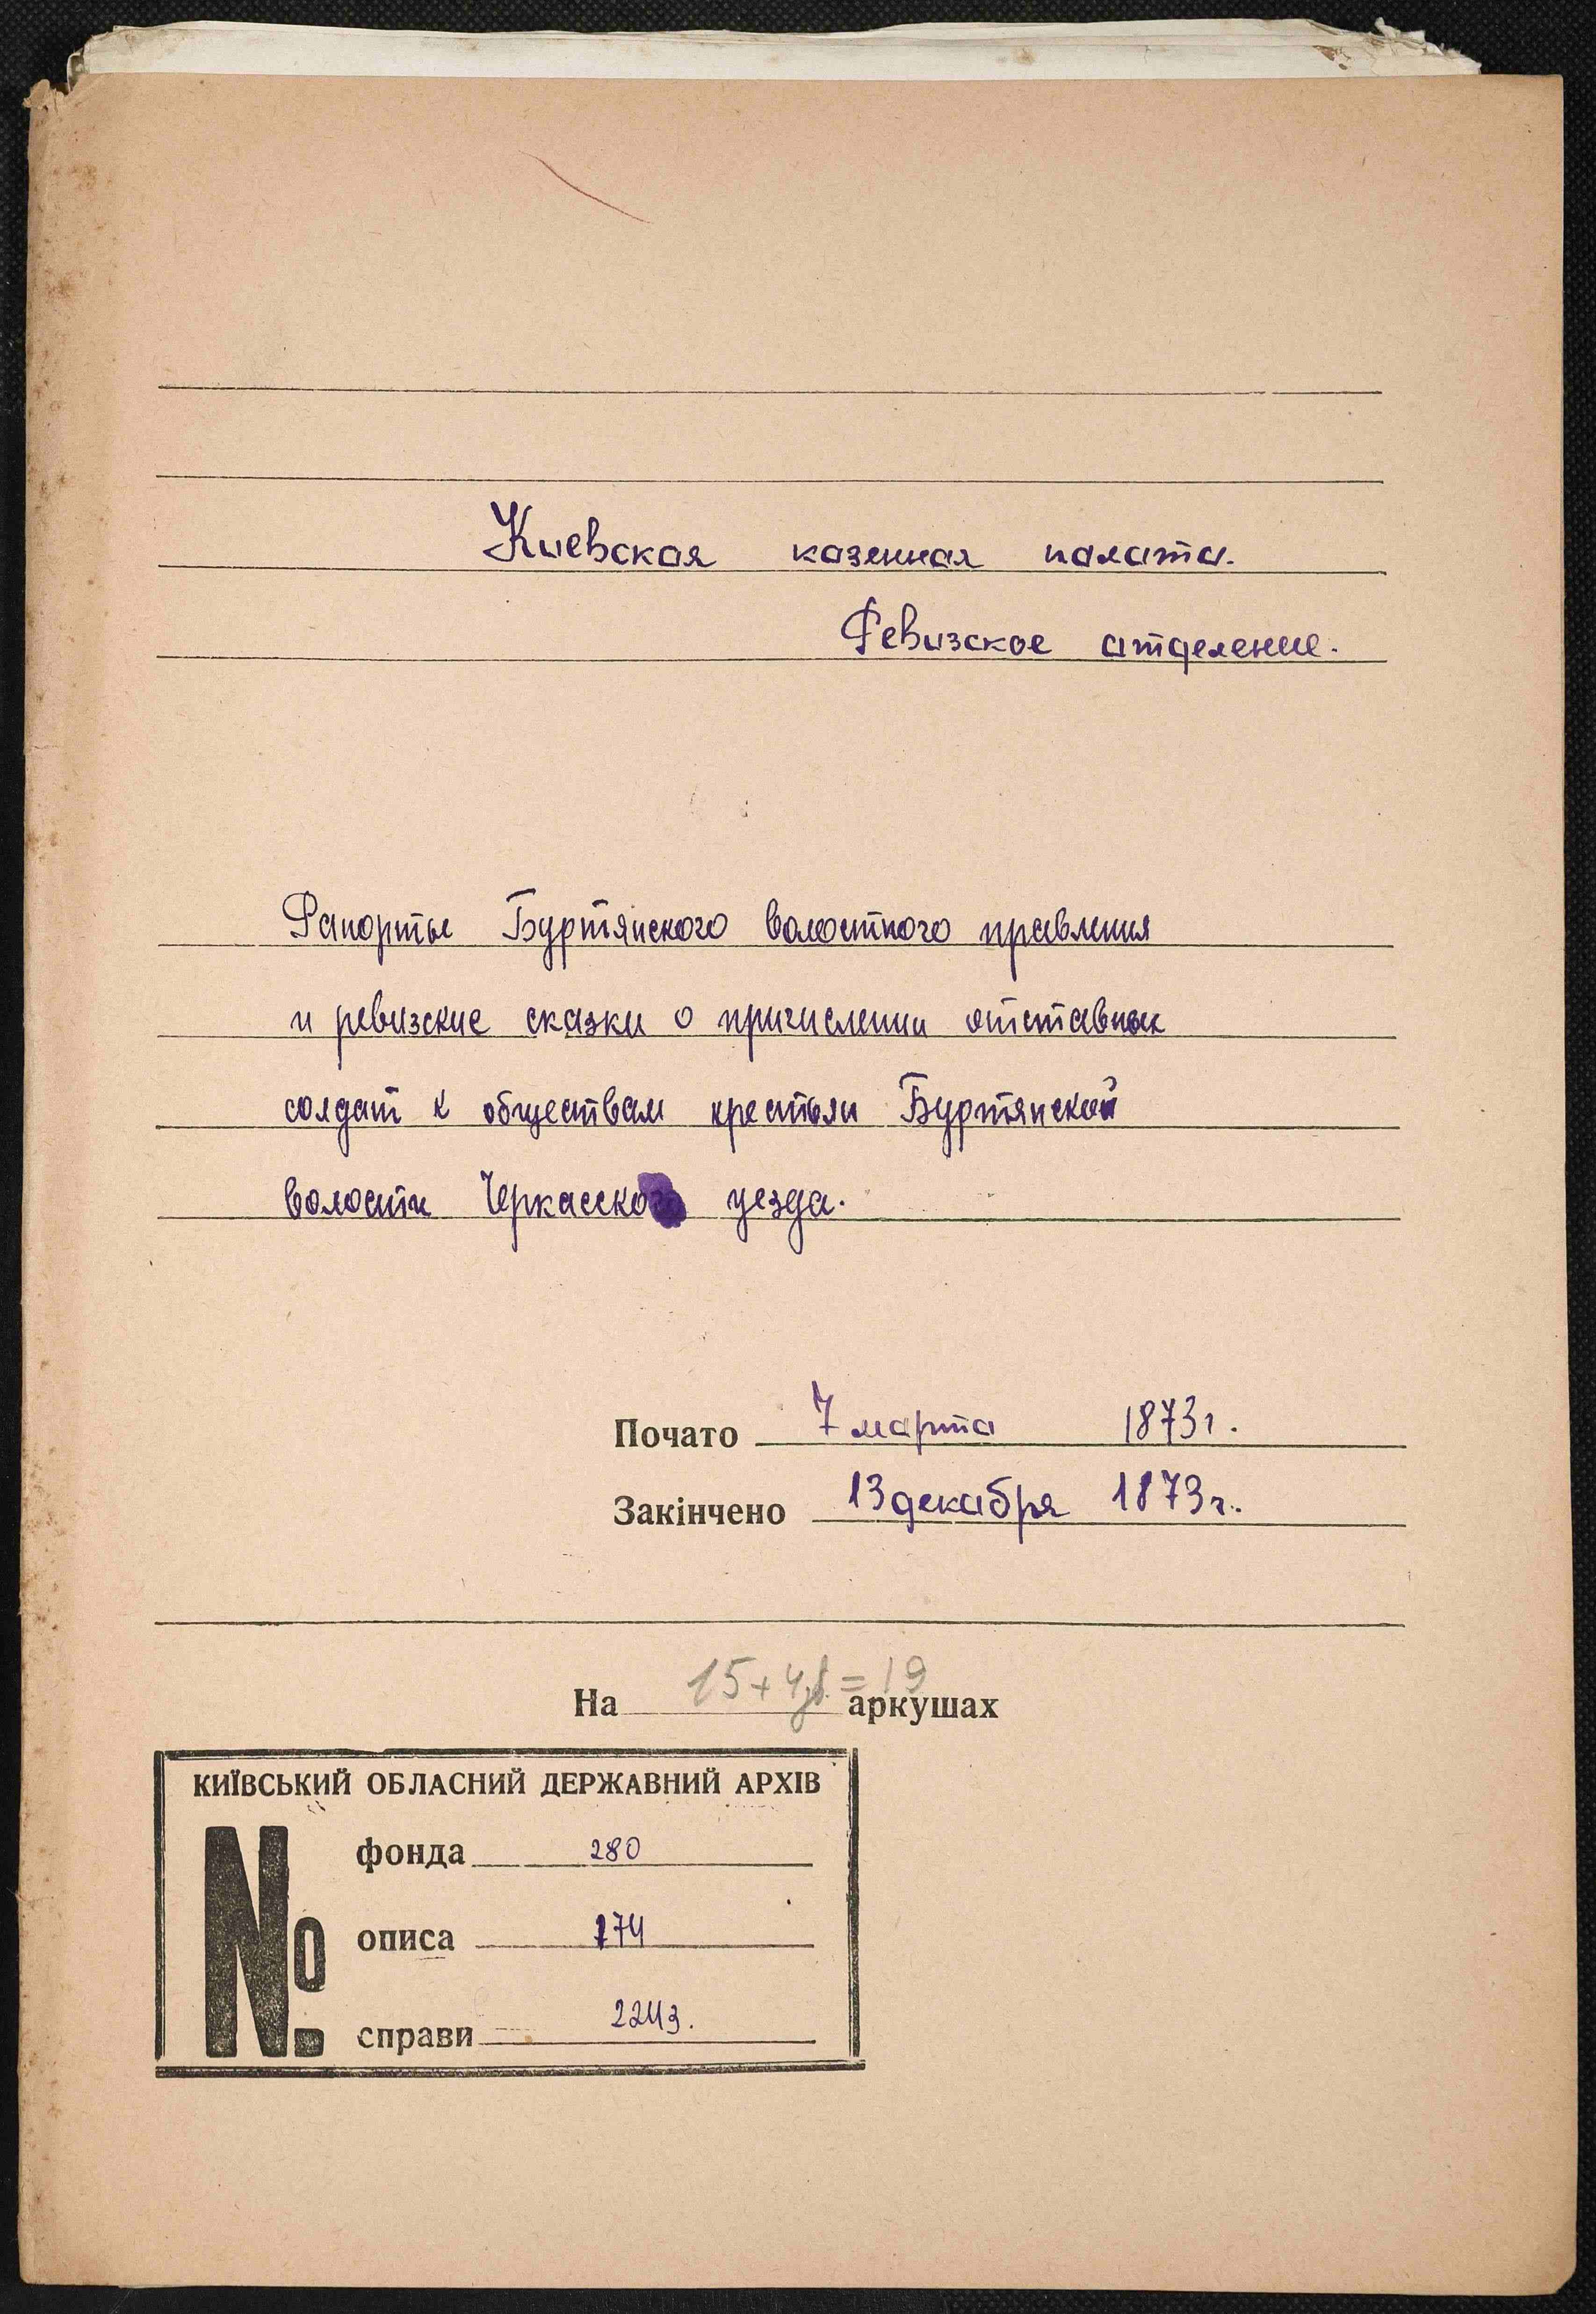 Киевская казенная палата.
Ревизское отделение.
Рапорты Буртянского волостного правления
и ревизские сказки о причислении отставных
солдат к обществам крестьян Буртянской
волости Черкасского уезда.
Почато 7 марта 1873 г.
Закінчено 13 декабря 1873 г.
На 15+4 = 19 аркушах
КИЇВСЬКИЙ ОБЛАСНИЙ ДЕРЖАВНИЙ АРХІВ
№ фонда 280
описа 174
справи 2243.